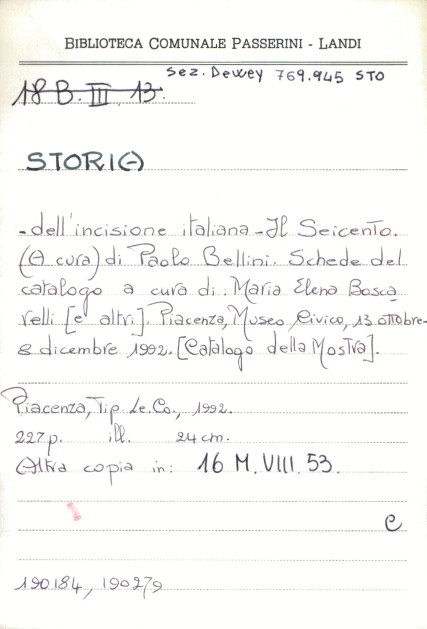 BIBLIOTECA COMUNALE PASSERINI - LANDI
Sez. Dewey 769.945 STO
18 B. III. 13.
STORI(A)
- dell'incisione italiana - Il Seicento.
(A cura) di Paolo Bellini. Schede del
catalogo a cura di: Maria Elena Bosca
relli [e altri]. Piacenza, Museo Civico, 13 ottobre-
8 dicembre 1992. [Catalogo della Mostra].
Piacenza, Tip. Le.Co., 1992.
227 p. ill. 24 cm.
(Altra copia in: 16 M. VIII. 53.
e
190184, 190279